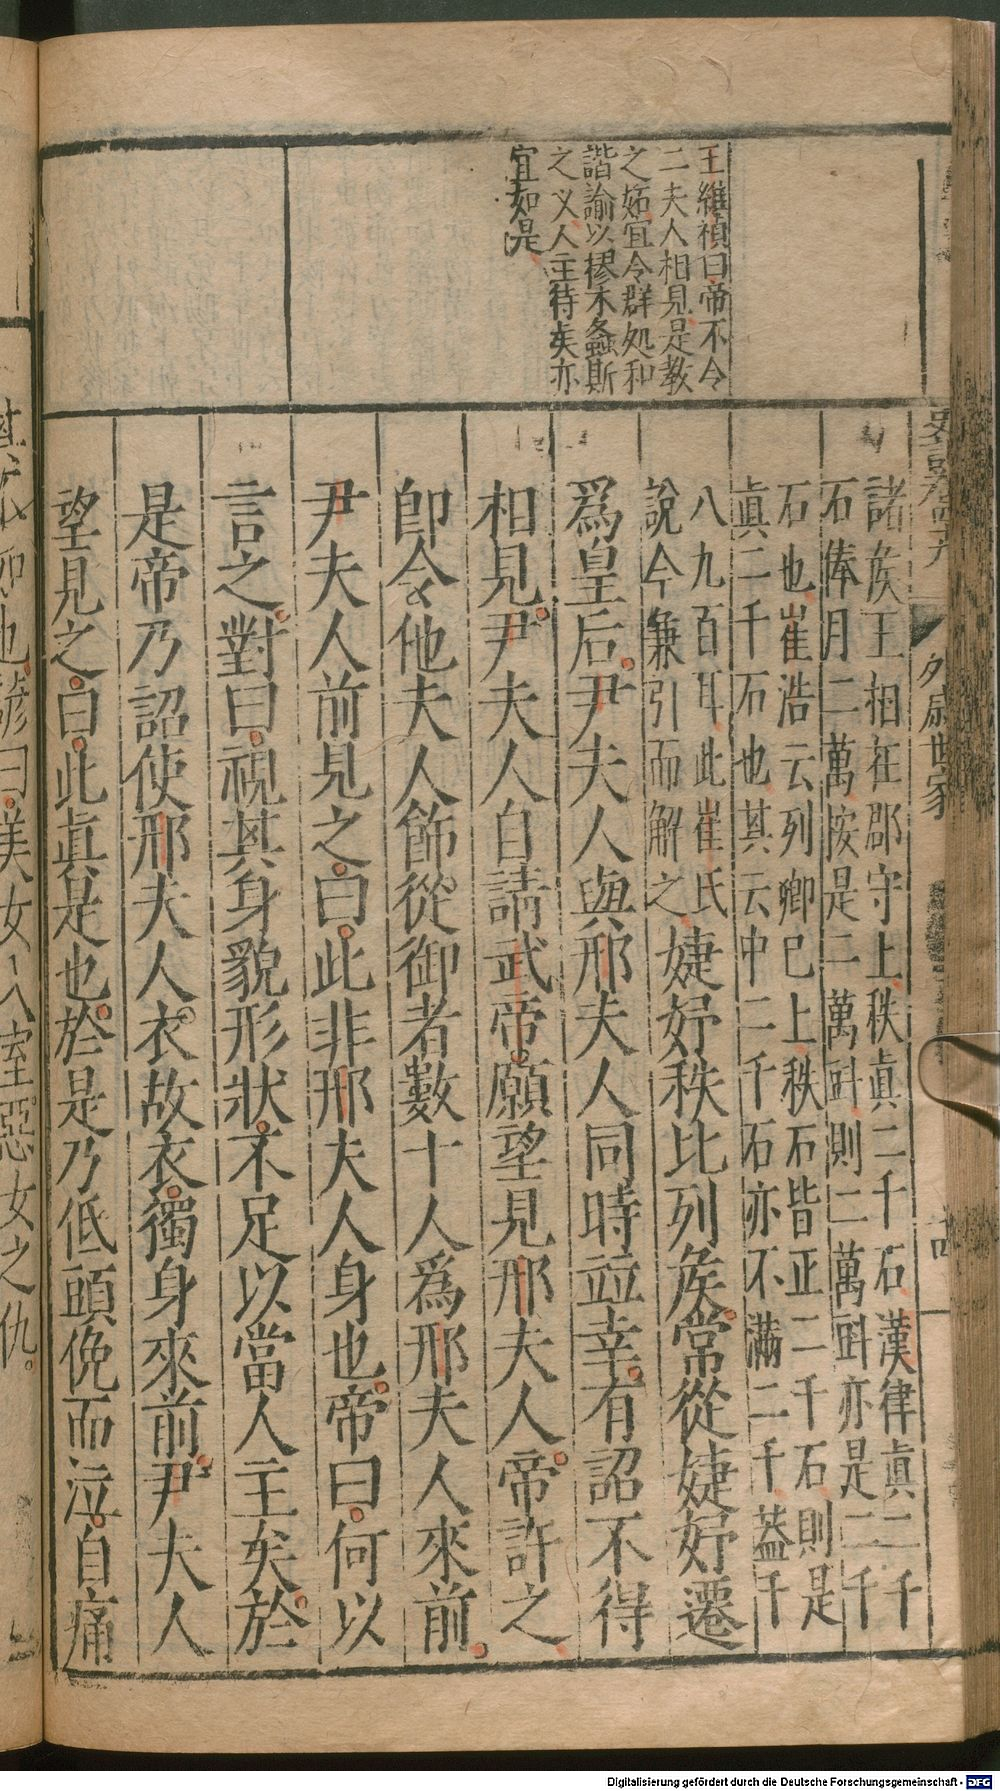 王維禎曰帝不令
二夫人相見是教
之妬宜令群処和
諧諭以樛木螽斯
之义人主待矣亦
宜如是
外戚世家
十四
諸矦王相在郡守上秩眞二千石漢律眞二千
石俸月二萬按是二萬㪷則二萬㪷亦是二千
石也崔浩云列卿巳上秩石皆正二千石則是
眞二千石也其云中二千石亦不滿二千葢千
八九百耳此崔氏
說今兼引而解之
婕妤秩比列矦。常從婕妤遷
爲皇后。尹夫人與邢夫人同時竝幸。有詔不得
相見。尹夫人自請武帝。願望見邢夫人。帝許之。
卽令他夫人飾。從御者數十人爲邢夫人來前。
尹夫人前見之。曰。此非邢夫人身也。帝曰。何以
言之。對曰。視其身貌形狀。不足以當人主矣。於
是帝乃詔使邢夫人衣故衣。獨身來前。尹夫人
望見之。曰。此眞是也。於是乃低頭俛而泣。自痛
其不如也。諺曰。美女入室惡女之仇。
Digitalisierung gefördert durch die Deutsche Forschungsgemeinschaft - DFG